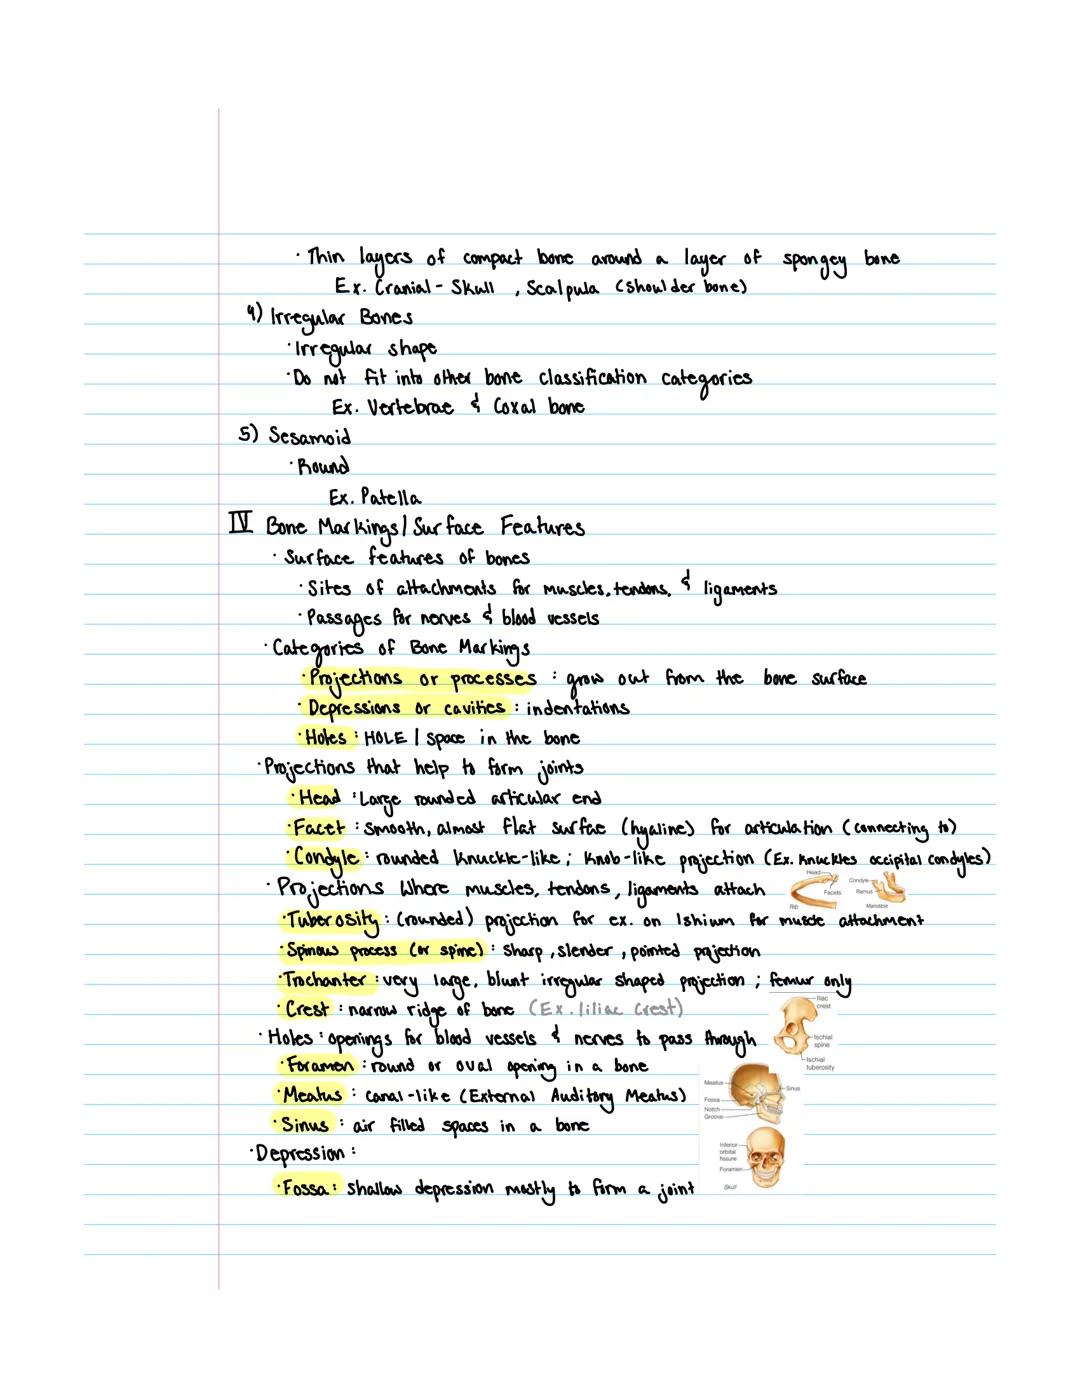 · Thin layers of compact bone around a layer of spongey bone
Ex. Cranial - Skull , Scalpula (shoulder bone)
4) Irregular Bones
· Irregular shape
· Do not fit into other bone classification categories
Ex. Vertebrae & Coxal bone
5) Sesamoid
· Round
Ex. Patella
IV Bone Markings/Surface Features
· Surface features of bones
· Sites of attachments for muscles, tendons, & ligaments
· Passages for nerves & blood vessels
· Categories of Bone Markings
· Projections or processes : grow out from the bone surface
· Depressions or cavities : indentations
· Holes : HOLE / space in the bone
· Projections that help to form joints
· Head : Large rounded articular end
· Facet : smooth, almost flat surfae (hyaline) for articulation (connecting to)
· Condyle : rounded knuckle-like ; knob-like projection (Ex. knuckles occipital condyles)
· Projections Where muscles, tendons, ligaments attach
Head
Facets
Rib
Condyle
Ramus
Mandible
· Tuberosity : (rounded) projection for ex. on Ishium for muscle attachment
· Spinous process (or spine) : sharp, slender, pointed projection
· Trochanter : very large, blunt irregular shaped projection ; femur only
· Crest : narrow ridge of bone (Ex. Iiliac Crest)
Iliac
crest
Ischial
spine
Ischial
tuberosity
· Holes : openings for blood vessels & nerves to pass through
· Foramen : round or oval opening in a bone
· Meatus : canal-like (External Auditory Meatus)
· Sinus : air filled spaces in a bone
Meatus
Sinus
Fossa
Notch
Groove
Inferior
orbital
fissure
Foramen
Skull
· Depression :
· Fossa : shallow depression mostly to form a joint